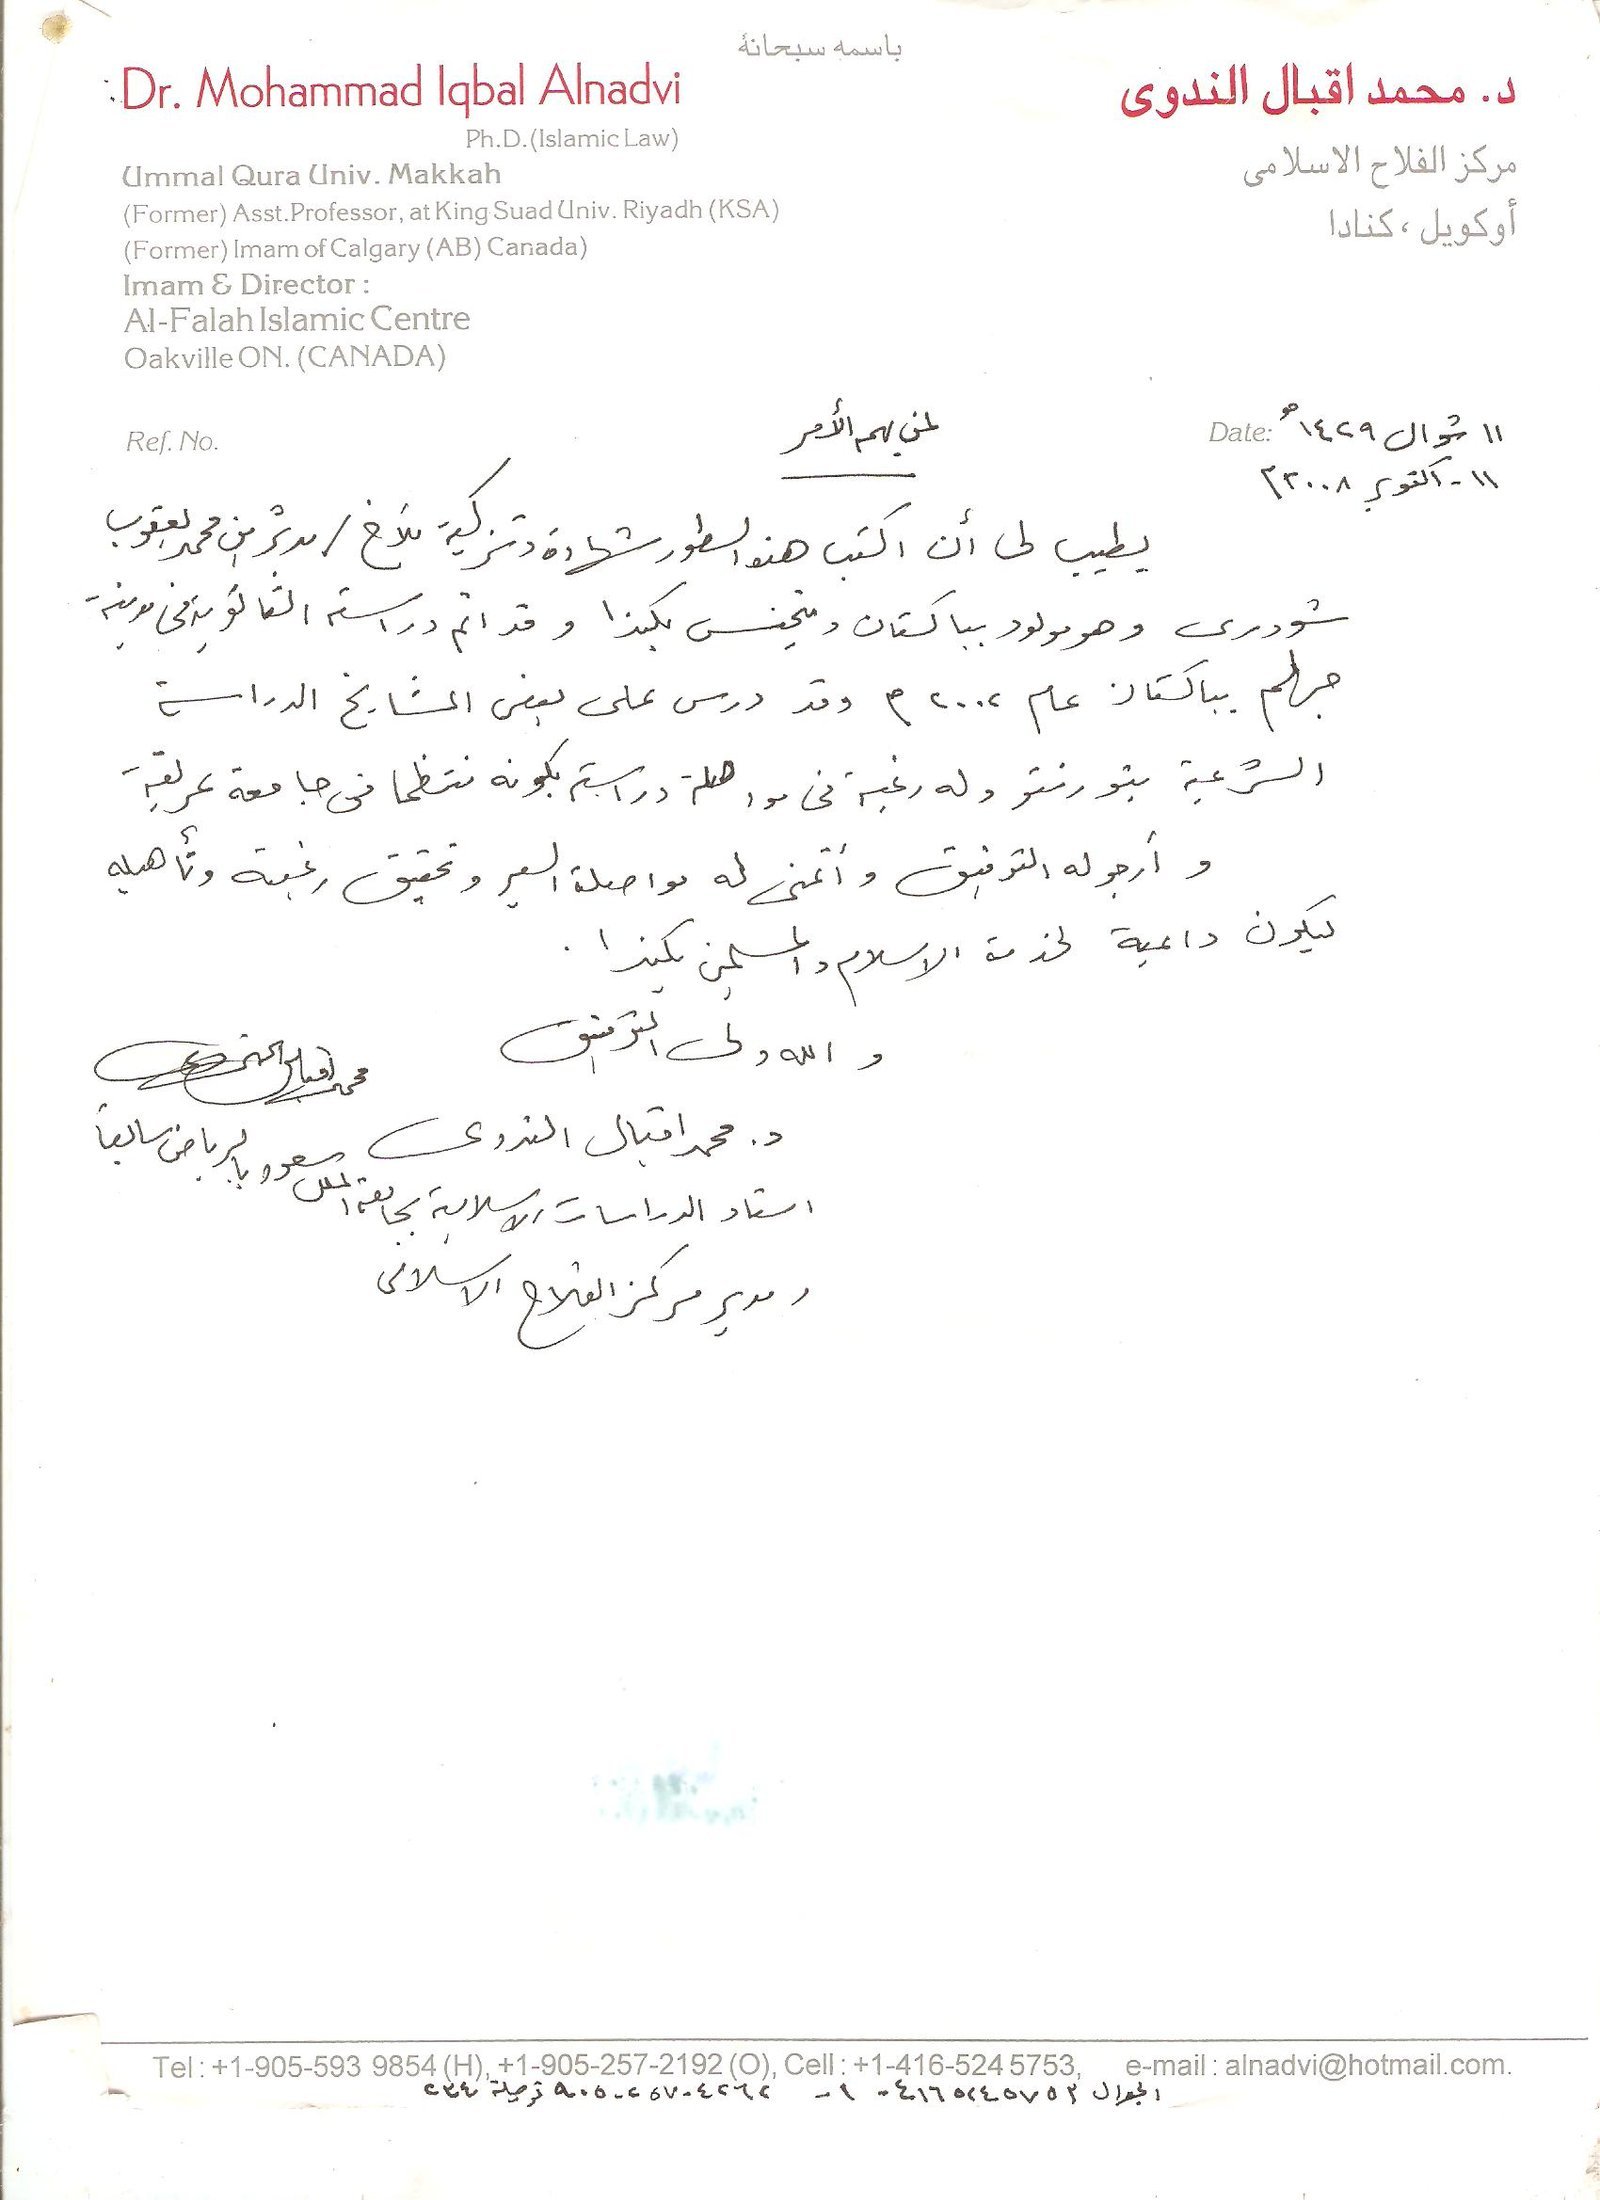 باسمه سبحانهٗ
Dr. Mohammad Iqbal Alnadvi
Ph.D.(Islamic Law)
Ummal Qura Univ. Makkah
(Former) Asst.Professor, at King Suad Univ. Riyadh (KSA)
(Former) Imam of Calgary (AB) Canada)
Imam & Director :
Al-Falah Islamic Centre
Oakville ON. (CANADA)
د. محمد اقبال الندوى
مركز الفلاح الاسلامى
أوكويل، كنادا
Ref. No.
Date: ١١ شوال ١٤٢٩هـ
١١ - اكتوبر ٢٠٠٨م
لمن يهمه الأمر
يطيب لى أن اكتب هذه السطور شهادة وتزكية للأخ / مدثر بن محمد يعقوب
شودرى وهو مولود بباكستان ومتجنس بكندا وقد اتم دراسته الثانوية فى مدينة
جهلم بباكستان عام ٢٠٠٢م وقد درس على بعض المشايخ الدراسة
الشرعية بتورنتو وله رغبة فى مواصلة دراسته بكونه منتظما فى جامعة عريقة
و أرجو له التوفيق و أتمنى له مواصلة السير و تحقيق رغبته وتأهيله
ليكون داعية لخدمة الاسلام والمسلمين بكندا .
و الله ولى التوفيق
محمد اقبال الندوى
د. محمد اقبال الندوى
استاذ الدراسات الاسلامية بجامعة الملك سعود بالرياض سابقاً
و مدير مركز الفلاح الاسلامى
Tel : +1-905-593 9854 (H), +1-905-257-2192 (O), Cell : +1-416-524 5753, e-mail : alnadvi@hotmail.com.
الجوال ٤١٦٥٢٤٥٧٥٣-٠٠١ ٩٠٥-٢٥٧-٤٢٦٢ توصيلة ٢٣٤